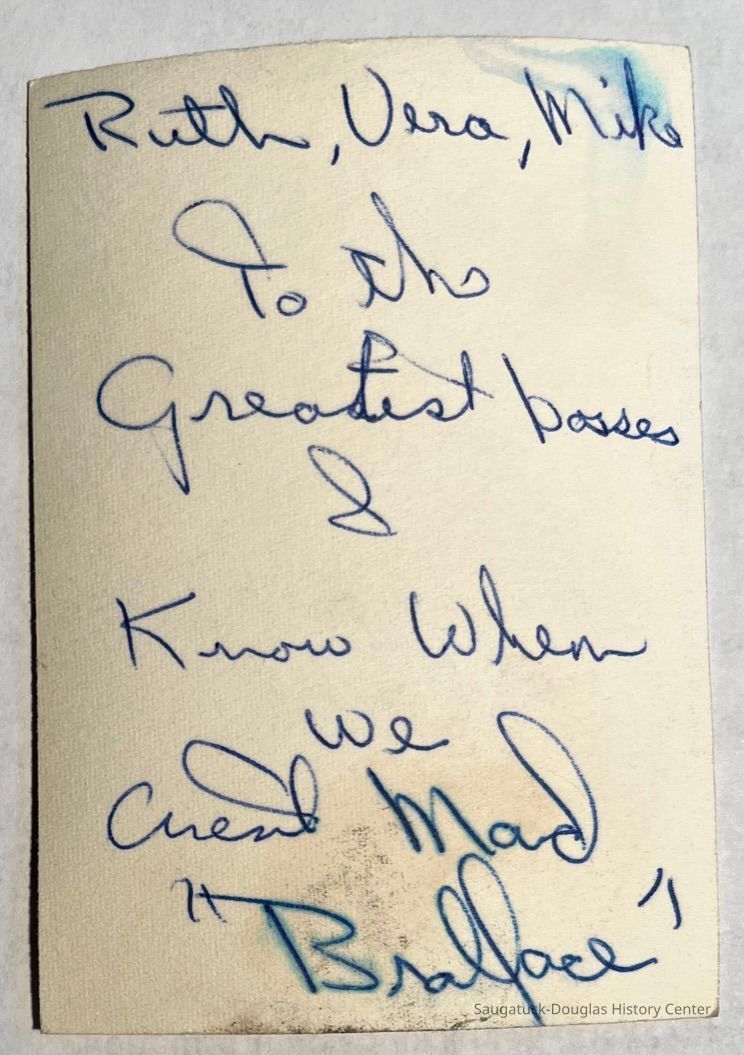 Ruth, Vera, Mike
To the
Greatest bosses
I
Know When
we
arent Mad
"Bralface"
Saugatuck-Douglas History Center